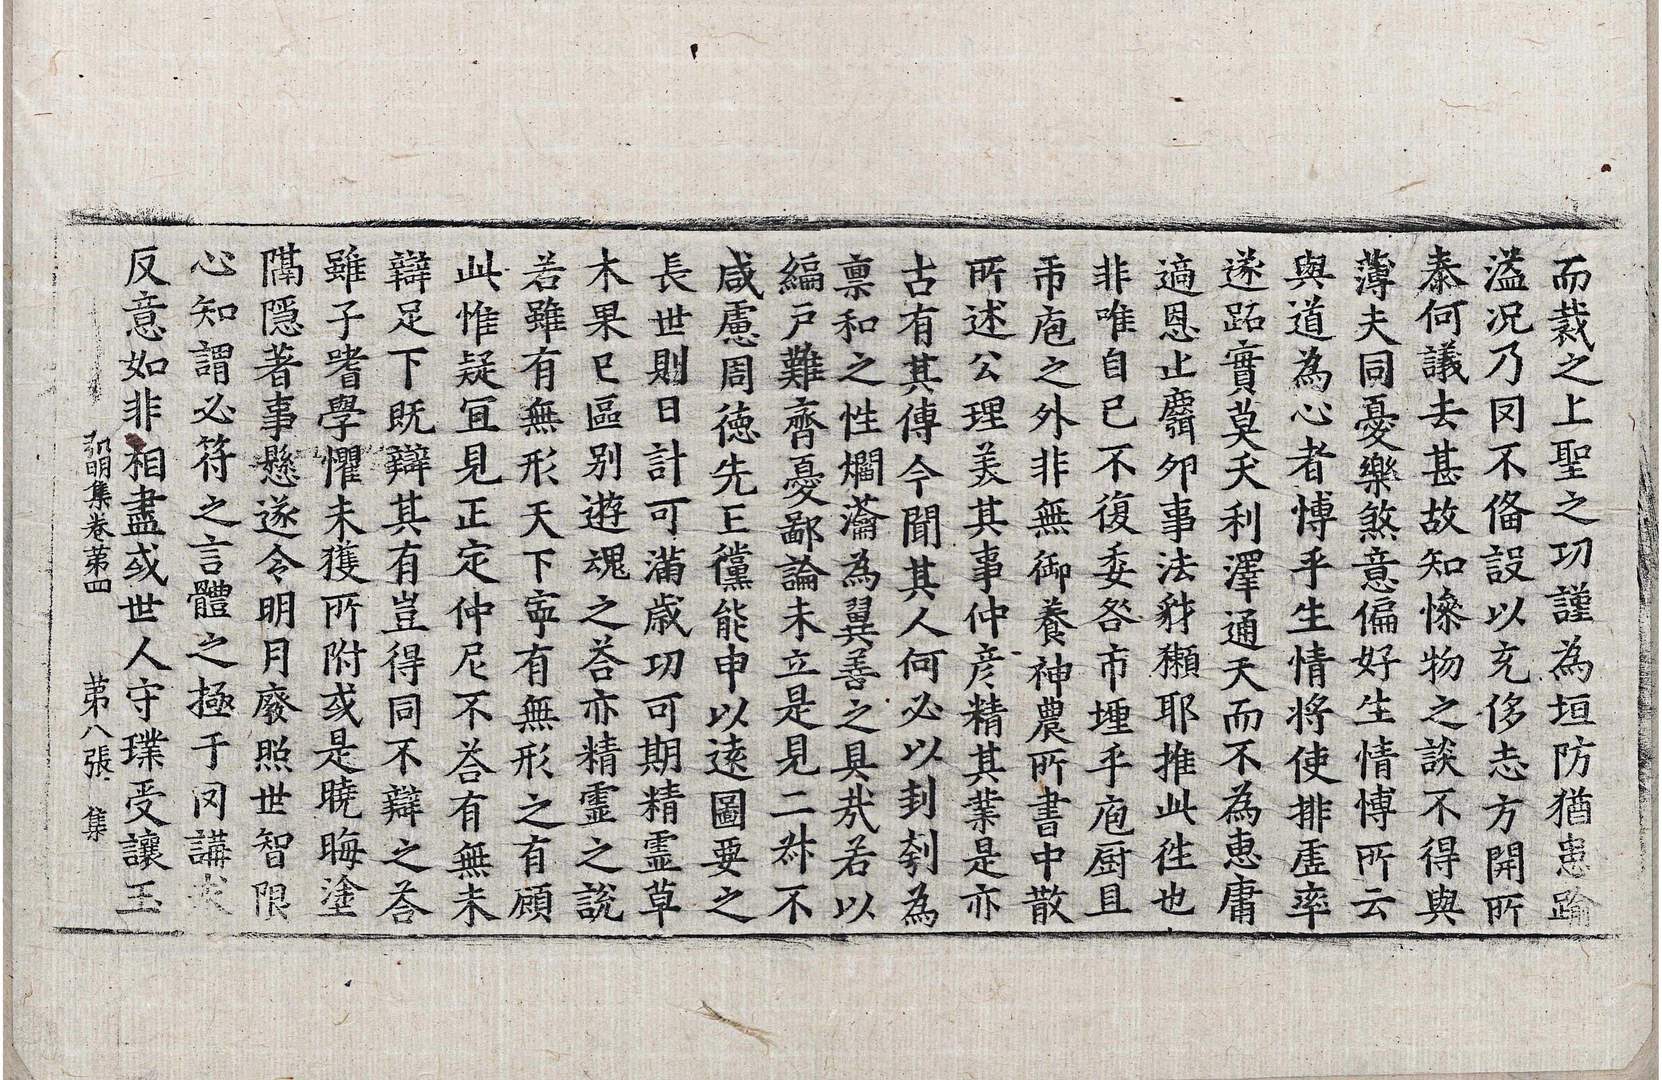 而裁之上聖之功謹為垣防猶患踰
溢况乃罔不俻設以充侈志方開所
泰何議去甚故知慘物之談不得與
薄夫同憂樂煞意偏好生情博所云
與道為心者博乎生情将使排虛率
遂跖實莫夭利澤通天而不為惠庸
適恩止麛卵事法豺獺耶推此往也
非唯自已不復委咎市壥乎庖厨且
帀庖之外非無御養神農所書中散
所述公理美其事仲彦精其業是亦
古有其傳今聞其人何必以刲刳為
禀和之性爓瀹為翼善之具㢤若以
編戸難齊憂鄙論未立是見二叔不
咸慮周徳先王儻能申以逺圖要之
長世則日計可滿歳功可期精靈草
木果已區别遊魂之荅亦精靈之說
若雖有無形天下寜有無形之有顧
此惟疑冝見正定仲尼不荅有無未
辯足下既辯其有豈得同不辯之荅
雖子嗜學懼未獲所附或是曉晦塗
隔隱著事懸遂令明月廢照世智限
心知謂必符之言體之極于罔講求
反意如非相盡或世人守璞受讓玉
弘明集卷第四 第八張 集